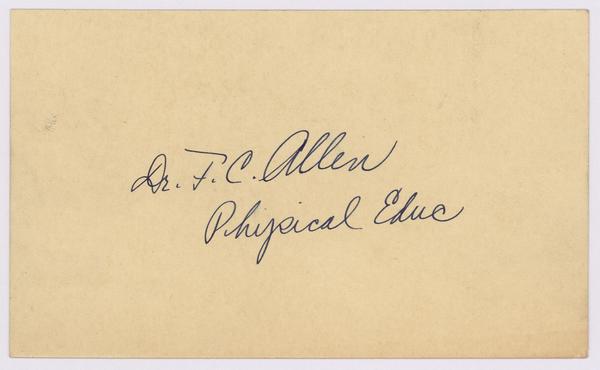 Dr. F. C. Allen
Physical Educ